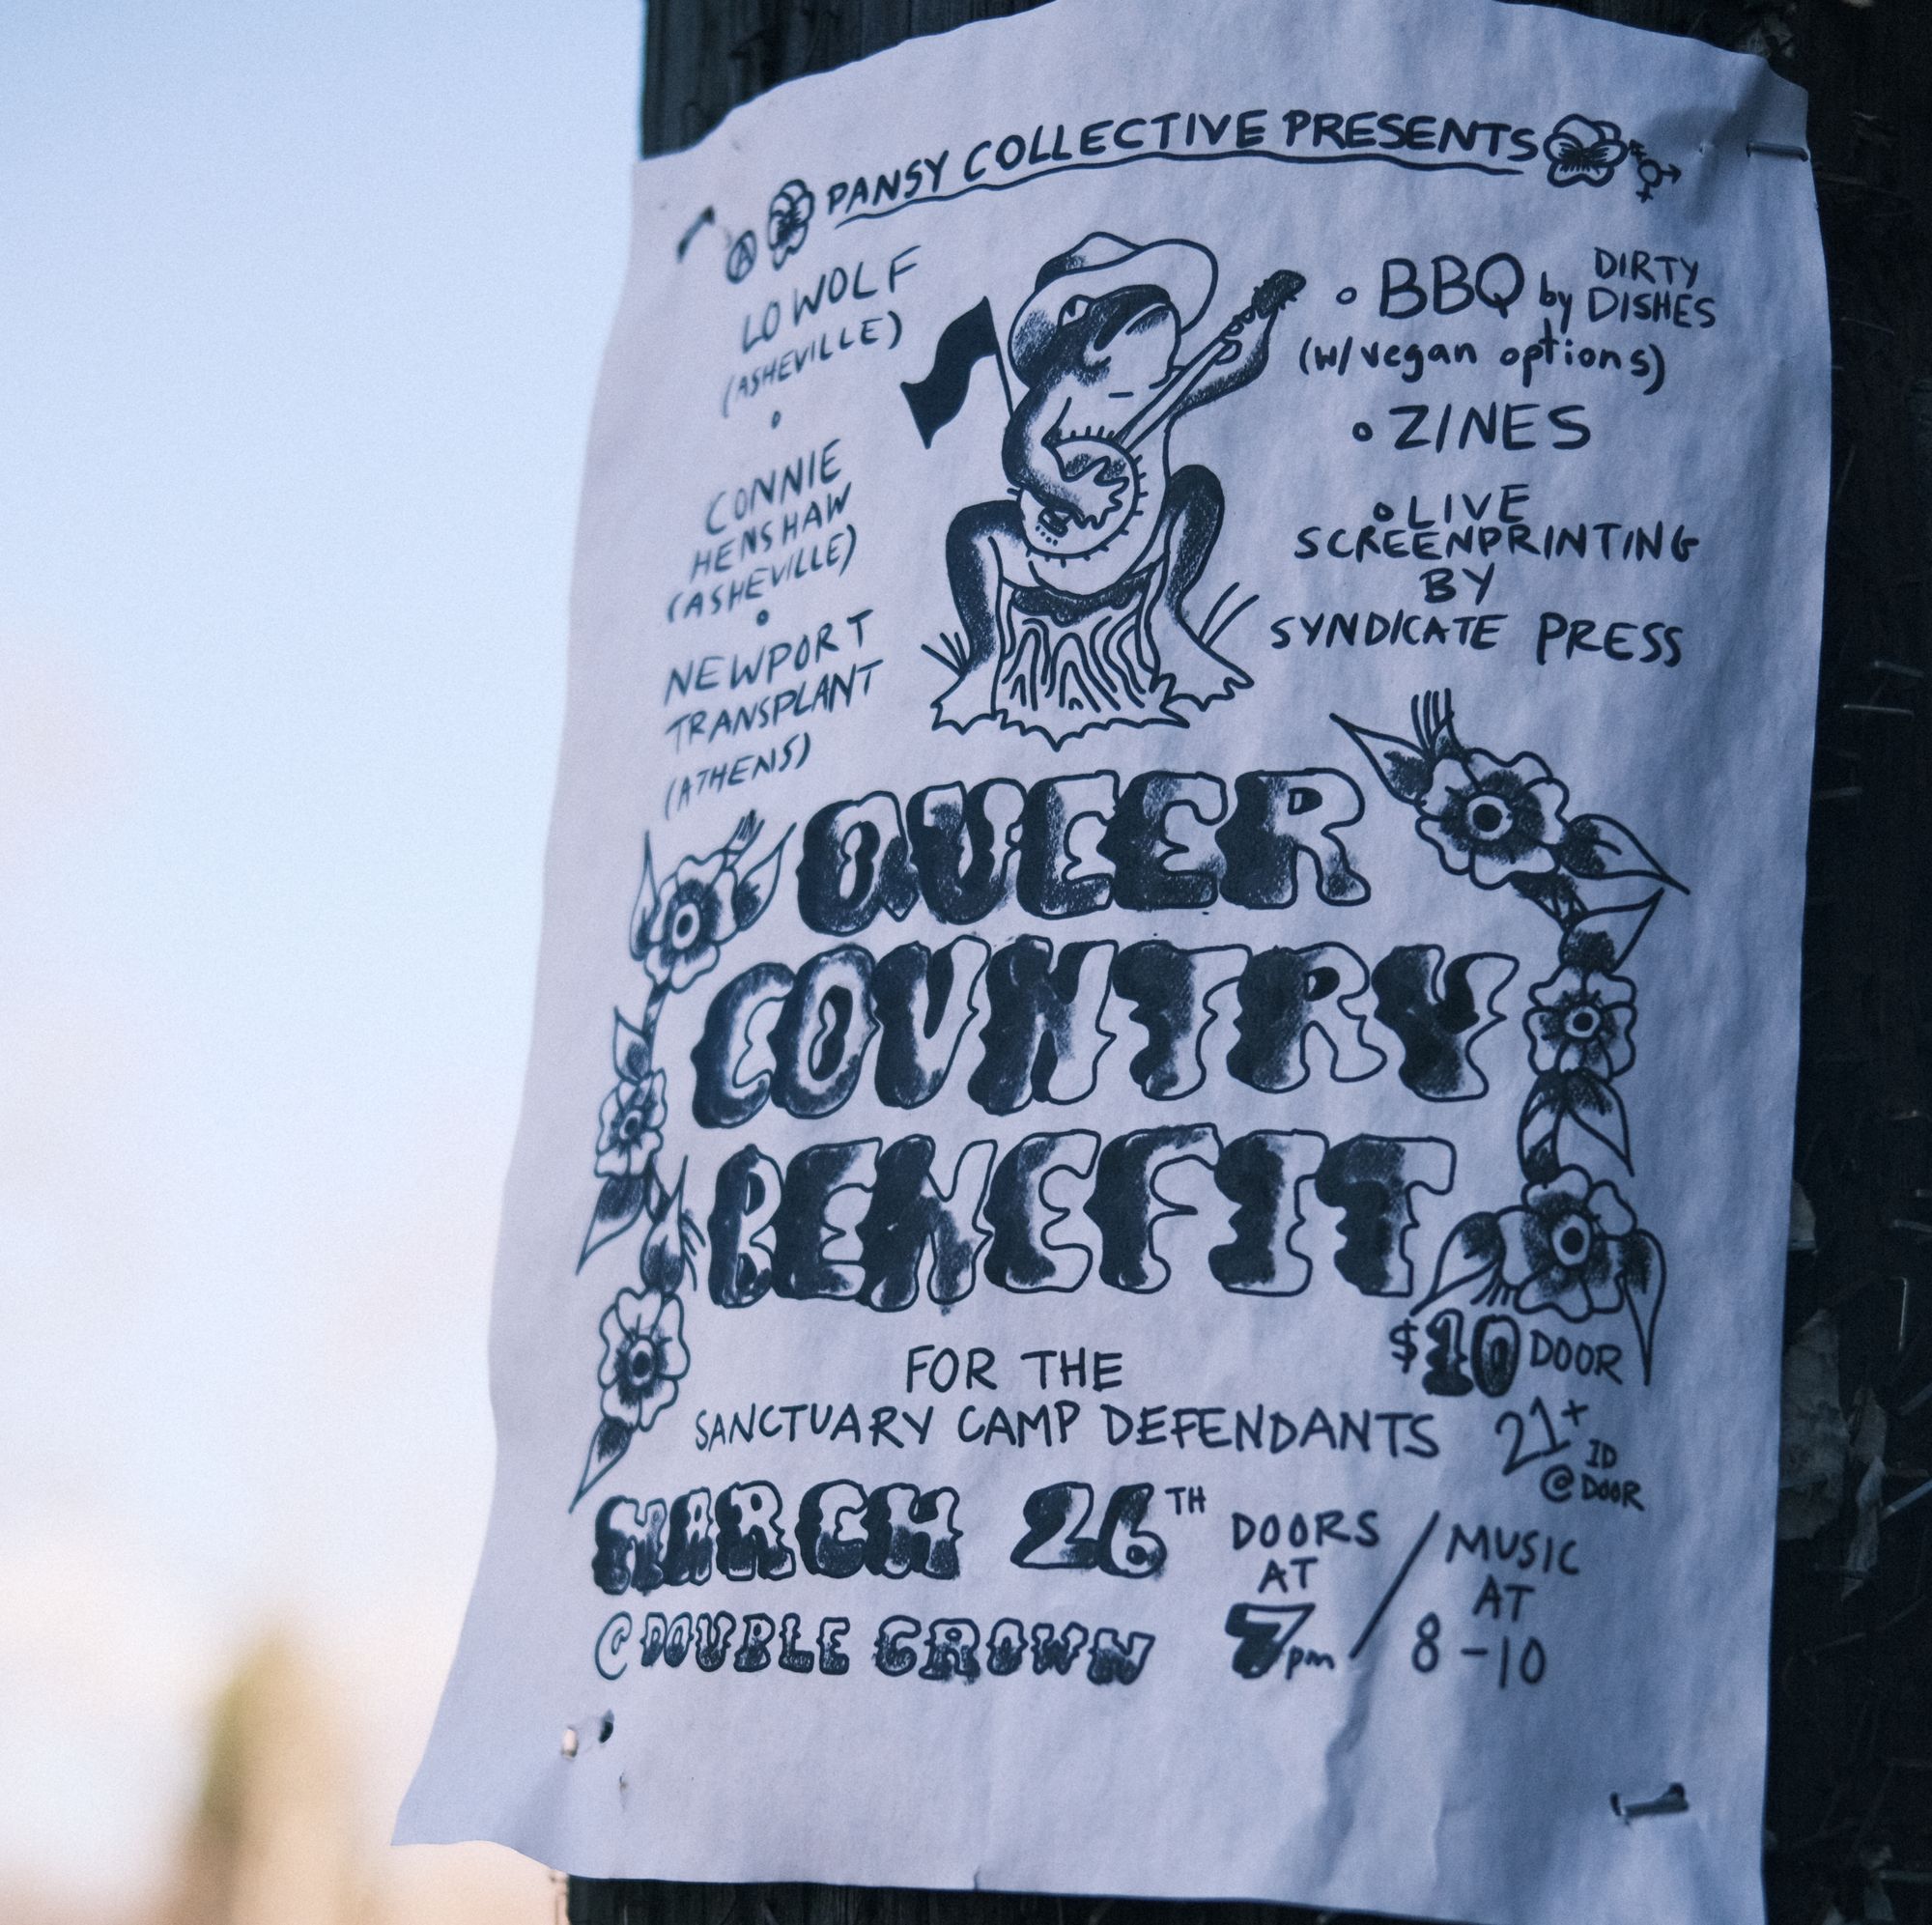 Ⓐ PANSY COLLECTIVE PRESENTS
LO WOLF
(ASHEVILLE)
CONNIE
HENSHAW
(ASHEVILLE)
NEWPORT
TRANSPLANT
(ATHENS)
• BBQ by DIRTY DISHES
(w/vegan options)
• ZINES
• LIVE
SCREENPRINTING
BY
SYNDICATE PRESS
QUEER
COUNTRY
BENEFIT
FOR THE
SANCTUARY CAMP DEFENDANTS
$10 DOOR
21+
ID
@ DOOR
MARCH 26TH
@ DOUBLE CROWN
DOORS
AT
7pm /
MUSIC
AT
8-10